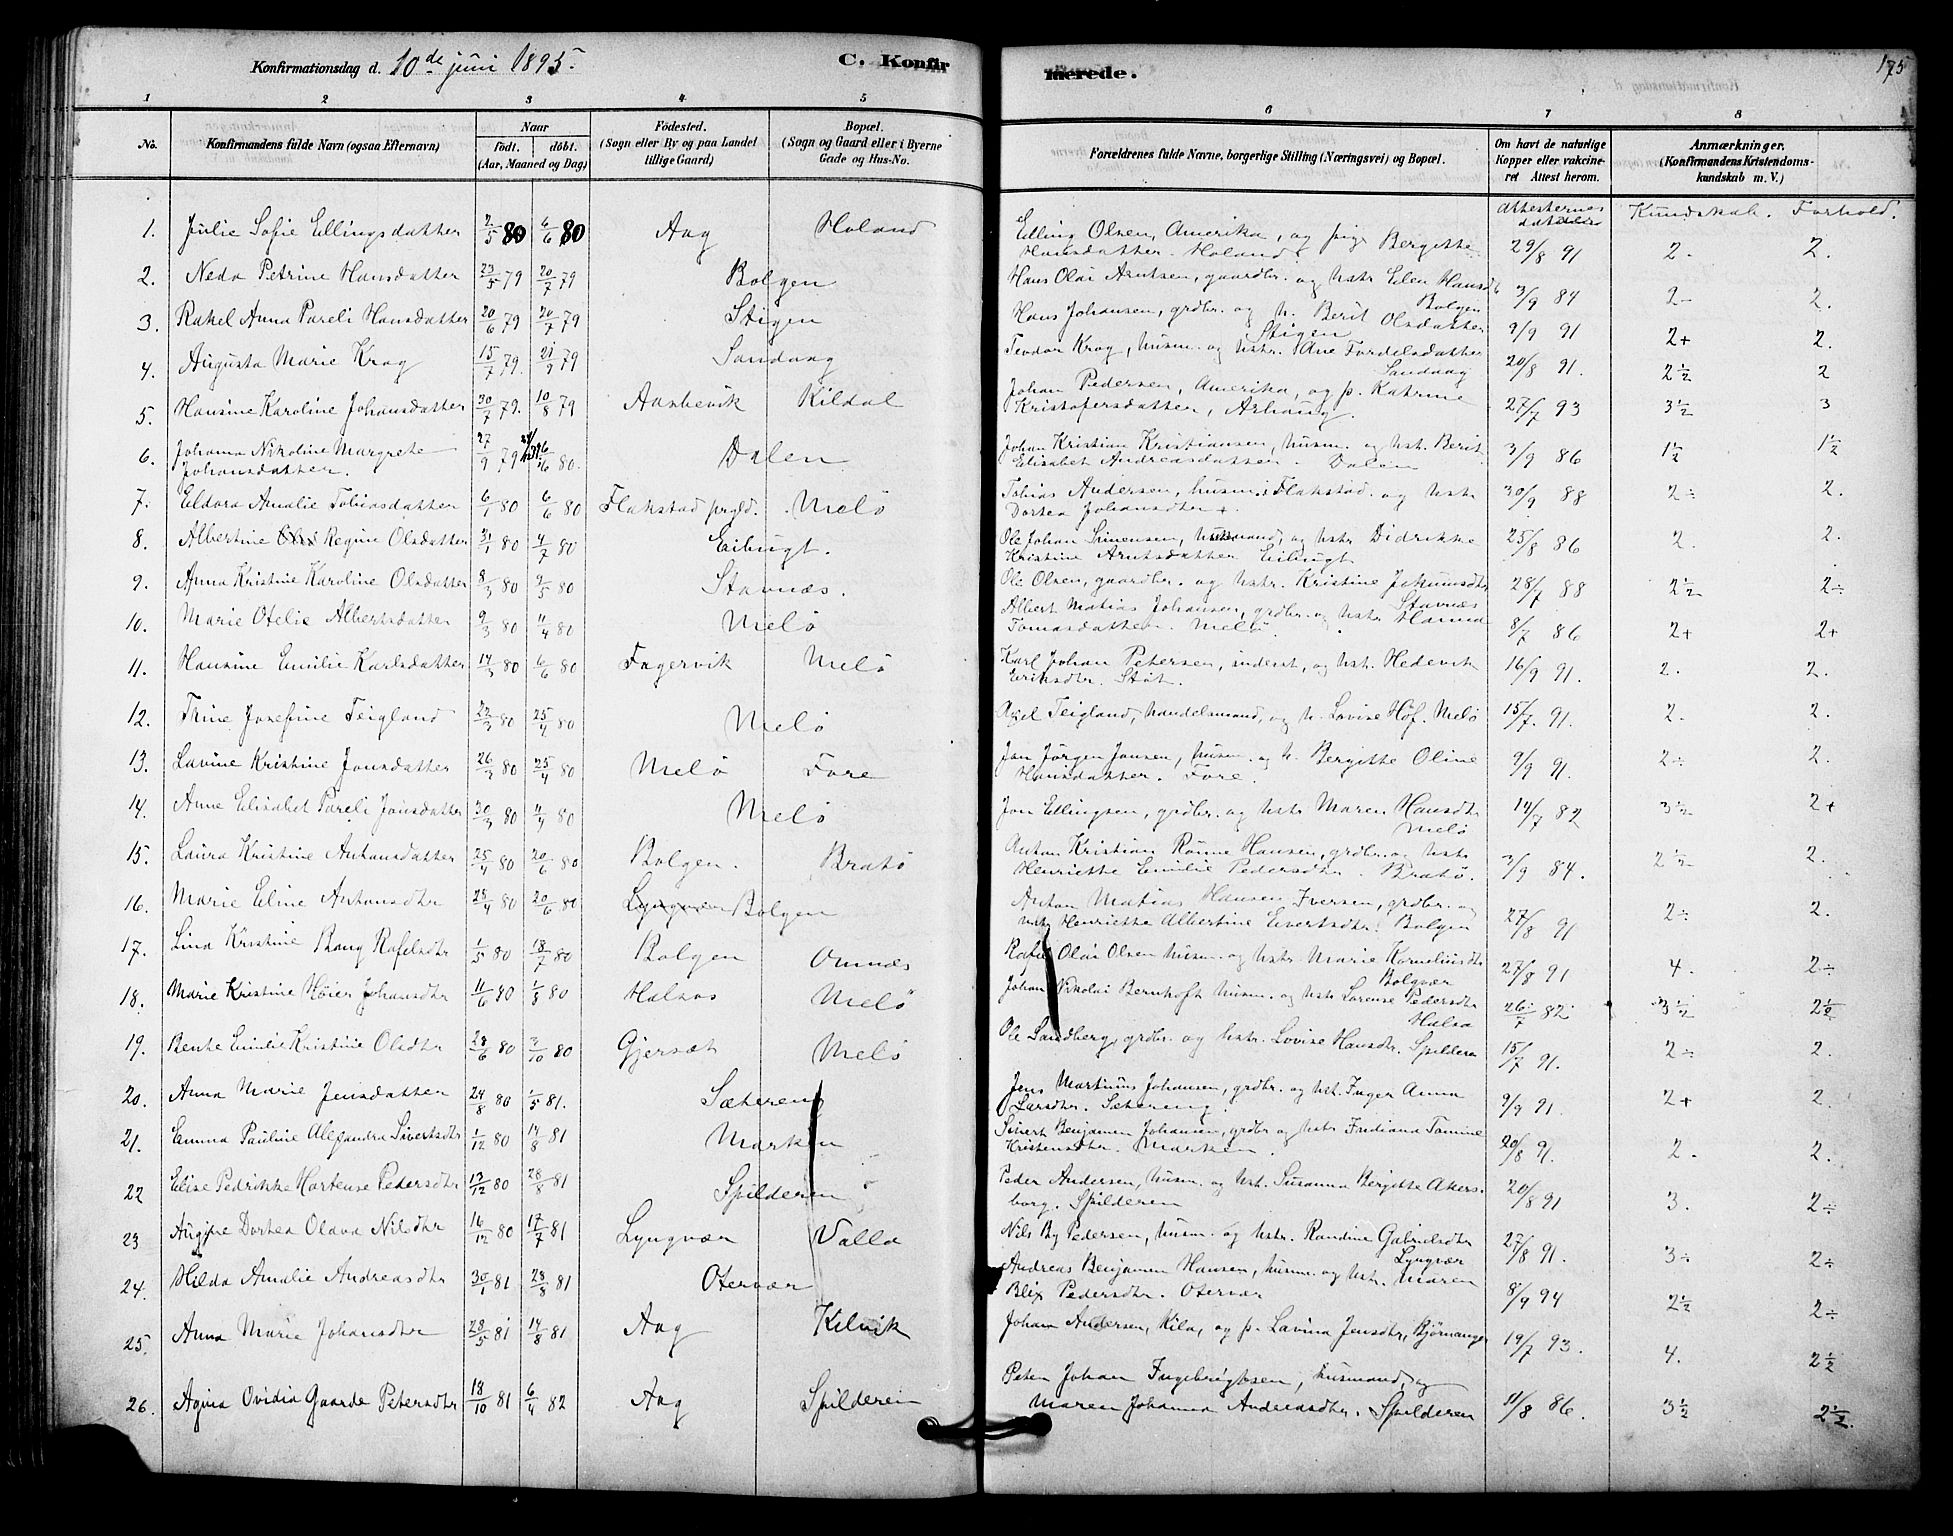 Konfirmationsdag d. 10de juni 1895.
C. Konfirmerede.
175
1 2 3 4 5 6 7 8
No.
Konfirmandens fulde Navn (ogsaa Efternavn)
Naar
født. døbt.
(Aar, Maaned og Dag)
Fødested.
(Sogn eller By og paa Landet
tillige Gaard)
Bopæl.
(Sogn og Gaard eller i Byerne
Gade og Hus-No.
Forældrenes fulde Navne, borgerlige Stilling (Næringsvei) og Bopæl.
Om havt de naturlige
Kopper eller vakcine-
ret Attest herom.
Anmærkninger.
(Konfirmandens Kristendoms-
kundskab m. V.)
Attesternes
Kundskab. Forhold.
1. Julie Sofie Ellingsdatter 2/5 80 6/6 80 Aag Holand Elling Olsen, Amerika, og pige Bergitte
Hansdatter. Holand. 29/8 91 2. 2.
2. Neda Petrine Hansdatter 23/5 79 20/7 79 Bolgen Hans Olai Arntsen, gaardbr. og hstr Elen Hansd
Bolgen 3/9 84 2- 2.
3. Rakel Anna Pareli Hansdatter 20/6 79 20/7 79 Stigen Hans Johansen, grdbr. og h. Berit Olsdatter
Stigen 9/9 91 2+ 2.
4. Augusta Marie Krog 15/7 79. 21/9 79 Sandaag Teodor Krog, husm. og hstr. Ane Fordelsdatter
Sandaag 20/8 91. 2½ 2
5. Hansine Karoline Johansdatter 30/7 79. 10/8 79 Aasbevik Kildal Johan Pedersen, Amerika, og p. Katrine
Kristofersdatter, 27/7 93 3½ 3
6. Johanna Nikoline Margrete
Johansdatter. 27/9 79 80. Dalen Johan Kristian Kristiansen, husm. og hst. Berit
Elisabet Andreasdatter. Dalen 3/9 86 1½ 1½
7. Eldora Amalie Tobiasdatter 6/1 80 6/6 80 Flakstad prgld. Melö Tobias Andersen, husm. i Flakstad og hstr
Dortea Johansdtr +. 30/9 88 2÷ 2.
8. Albertine Regine Olsdatter 31/1 80 4/7 80 Eibugt. Ole Johan Simensen, husmand, og hstr Didrikke
Kristine Arntsdatter Eibugt 25/8 86 2. 2.
9. Anna Kristine Karoline Olsdatter 8/3 80 9/5 80 Stavnæs. Ole Olsen, gaardbr. og hstr. Kristine Jakumsdtr
Stavnæs 28/7 88 2½ 2÷
10. Marie Otelie Albertsdatter 9/3 80 11/4 80 Melö Albert Matias Johansen, grdbr. og hstr Hanna
Tomasdatter. Melö. 8/7 86 2+ 2+
11. Hansine Emilie Karlsdatter 14/3 80 6/6 80 Fagervik Melö Karl Johan Petersen, inderst, og hst. Hedevik
Eriksdtr. Stöt. 16/9 91. 2. 2.
12. Trine Josefine Teigland 22/3 80 25/4 80 Melö Axel Teigland, handelsmand, og h. Lovise Hof. Melö 15/7. 91. 2. 2.
13. Lavine Kristine Jonsdatter 26/3 80 25/4 80 Melö Fore Jan Jörgen Jonsen, husm. og h. Bergitte Oline
Hansdatter. Fore. 9/9 91. 2÷ 2.
14. Anne Elisabet Pareli Jonsdatter 30/3 80 11/4 80 Melö Jon Ellingsen, grdbr. og hstr Maren Hansdtr
Melö 14/7 82 3½ 2+
15. Laura Kristine Antonsdatter 25/4 80 20/6 80 Bolgen. Bratö Anton Kristian Rönne Hansen, grdbr. og hstr
Henriette Emilie Pedersdtr. Bratö. 3/9 84. 2½ 2.
16. Marie Eline Antonsdtr 28/4 80 20/6 80 Lyngvær Bolgen Anton Matias Hansen Iversen, grdbr. og
hstr Henriette Albertine Evertsdtr. Bolgen 27/8 91 2÷ 2.
17. Lina Kristine Bang Rafelsdtr 1/5 80 18/7 80 Bolgen Omnæs Rafel Olai Olsen husm. og hstr Marie Korneliusdtr
Bolgvær 27/8 91 4. 2÷
18. Marie Kristine Höier Johansdtr 11/6 80 1/8 80 Halsos Melö Johan Nikolai Bernhoft husm. og hstr Lorense Pedersdtr
Halsa 26/7 82 3½ 2½
19. Bente Emilie Kristine Olsdtr 28/6 80 3/10 80 Gjersæt Melö Ole Sandberg, grdbr. og hstr. Lovise Hansdtr. Spilderen 15/7 91. 2÷ 2.
20. Anna Marie Jensdatter 24/8 80 1/5 81. Sætereng Jens Martinus Johansen, grdbr. og hst. Inger Anna
Larsdtr. Sætereng. 9/9 91. 2+ 2.
21. Emma Pauline Alexandra Sivertsdtr 1/12 80 14/8 81 Marken Sivert Benjamin Johansen, grdbr og hstr Frediana Tomine
Kristensdtr. Marken. 20/8 91. 2. 2.
22 Elise Pedrikke Hortense Pedersdtr 13/12 80 28/8 81 Spilderen Peder Andersen, husm. og hst. Susanna Bergitte Akers-
borg. Spilderen 20/8 91 3. 2÷
23 Dortea Olava Nilsdtr 16/12 80 17/7 81 Lyngvær Valla Nils By Pedersen, husm. og hstr. Randine Gabrielsdtr
Lyngvær 27/8 91. 3÷ 2÷
24. Hilda Amalie Andreasdtr 30/1 81 28/8 81 Otervær Andreas Benjamin Hansen, husm. og hstr. Maren
Blix Pedersdtr. Otervær 8/9 94 2½ 2÷
25. Anna Marie Johansdtr 28/5 81 14/8 81 Aag Kilvik Johan Andersen, Kila, og p. Lavina Jensdtr, Björnanger 19/7 93. 4. 2½
26. Agina Ovidia Gaarde Petersdtr 18/10 81 6/4 82 Aag Spilderen Peter Johan Ingebrigtsen, husmand, og
Maren Johanna Andreasdtr. Spilderen 11/8 86. 3½ 2½.